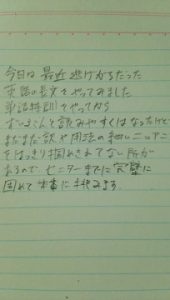 今日は最近逃げがちだった
英語の長文をやってみました
単語特訓をやってから
ずいぶんと読みやすくはなったけど
まだまだ訳や用法の細いニュアンス
をはっきり掴めきれてない所が
あるので センターまでに完璧に
固めて本番に挑みます